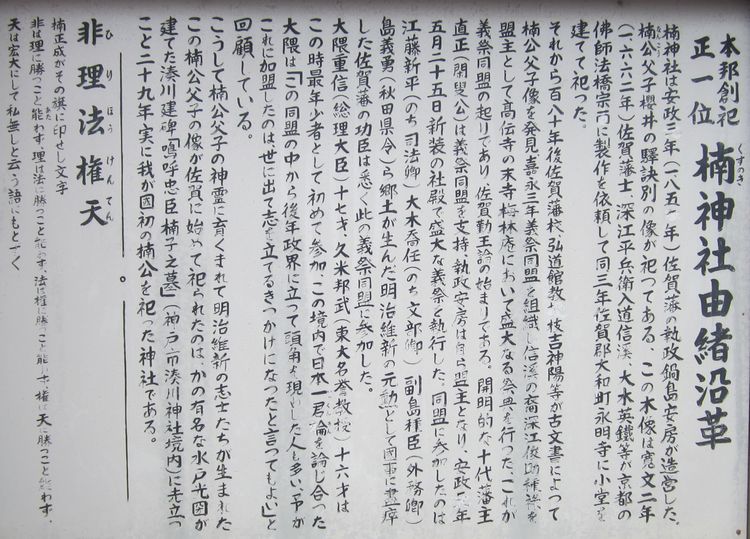 本邦創祀
正一位 楠神社由緒沿革
くすのき
楠神社は安政三年(一八五 年)佐賀藩の執政鍋島安房が造営した。
楠公父子櫻井の驛訣別の像が祀つてある、この木像は寛文二年
(一六六二年)佐賀藩士 深江平兵衛入道信溪、大木英鐵等が京都の
佛師法橋宗而に製作を依頼して同三年佐賀郡大和町永明寺に小堂を
建てて祀つた。
それから百八十年後佐賀藩校弘道館教 枝吉神陽等が古文書によつて
楠公父子像を発見嘉永三年義祭同盟を組織し信溪の裔深江俊助種禄を
盟主として高伝寺の末寺梅林庵において盛大なる祭典を行つた、これが
義祭同盟の起りであり 佐賀勤王論の始まりである。開明的な十代藩主
直正(閑叟公)は義祭同盟を支持、執政安房は自ら盟主となり、安政 年
五月二十五日新装の社殿で盛大な義祭を執行した。同盟に参加したのは
江藤新平(のち司法卿) 大木喬任(のち文部卿) 副島種臣(外務卿)
島義勇(秋田県令)ら郷土が生んだ明治維新の元勲として国事に盡瘁
した佐賀藩の功臣は悉く此の義祭同盟に参加した。
大隈重信(総理大臣)十七才、久米邦武(東大名誉教授)十六才は
この時最年少者として初めて参加、この境内で日本一君論を論じ合つた
大隈は「この同盟の中から後年政界に立つて頭角を現わした人も多い、予が
これに加盟したのは世に出て志を立てるきつかけになつたと言つてもよい」と
回顧している。
こうして楠公父子の神霊に育くまれて明治維新の志士たちが生まれた
この楠公父子の像が佐賀に始めて祀られたのは、かの有名な水戸光圀が
建てた湊川建碑「嗚呼忠臣楠子之墓」(神戸市湊川神社境内)に先立つ
こと二十九年、実に我が国初の楠公を祀つた神社である。
非理法権天
ひ り ほう けん てん
楠正成がその旗に印せし文字
非は理に勝つこと能わず、理は法に勝つこと能わず、法は権に勝つこと能わず、権は天に勝つこと能わず、
あた
天は宏大にして私無しと云う語にもとづく